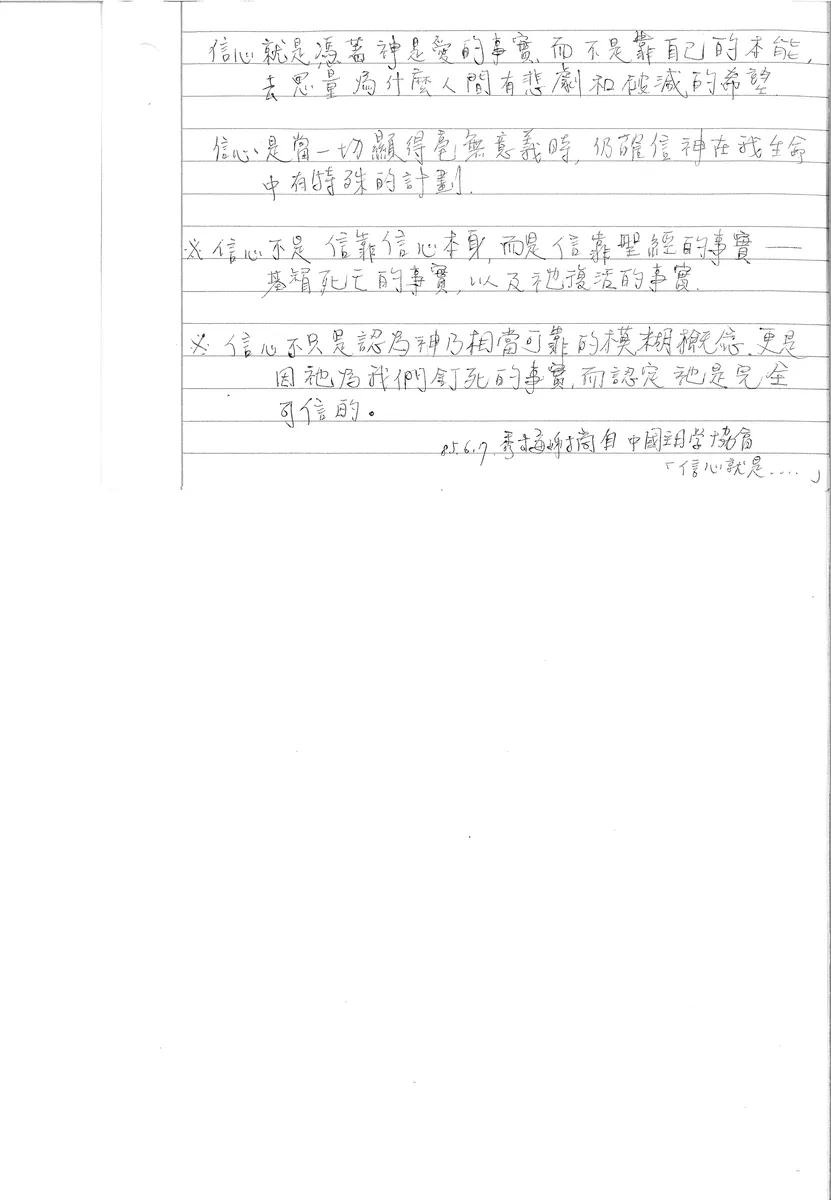 信心就是憑著神是愛的事實,而不是靠自己的本能,
去思量為什麼人間有悲劇和破滅的希望.
信心是當一切顯得毫無意義時,仍確信神在我生命
中有特殊的計劃.
※信心不是信靠信心本身,而是信靠聖經的事實——
基督死亡的事實,以及祂復活的事實.
※信心不只是認為神乃相當可靠的模糊概念.更是
因祂為我們釘死的事實,而認定祂是完全
可信的。
85.6.7.秀梅姊摘自 中國主日學協會
「信心就是.....」